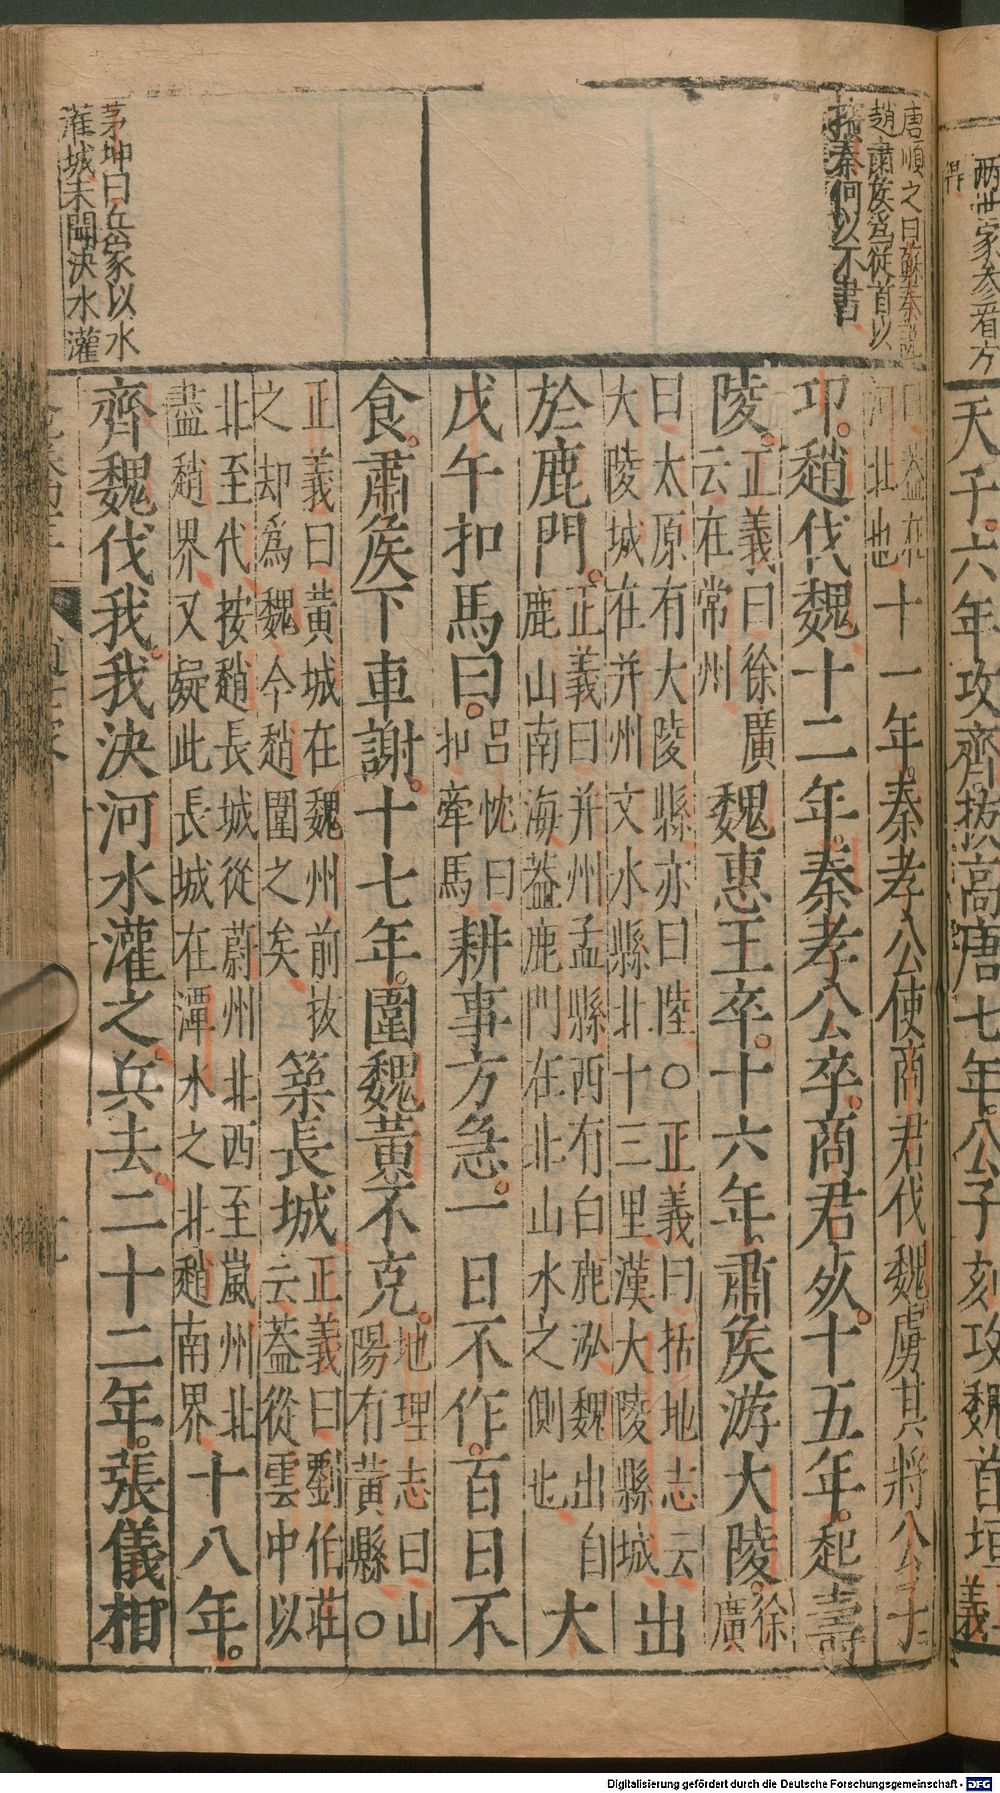 兩世家參看方
得
天子。六年攻齊。拔高唐七年。公子刻攻魏首垣
義
唐順之曰蘇秦說
趙肅侯爲從首以
擯秦何以不書
曰。蓋在
河北也
十一年。秦孝公使商君伐魏虜其將公子
卬。趙伐魏十二年。秦孝公卒。商君死。十五年。起壽
陵。
正義曰徐廣
云在常州
魏惠王卒。十六年。肅侯游大陵。
徐
廣
曰太原有大陵縣亦曰陸○正義曰括地志云
大陵城在并州文水縣北十三里漢大陵縣城
出
於鹿門。
正義曰并州孟縣西有白鹿泓魏出自
鹿山南海蓋鹿門在北山水之側也
大
戊午扣馬曰。
呂忱曰
扣牽馬
耕事方急。一日不作。百日不
食。肅侯下車謝。十七年。圍魏黃不克。
地理志曰山
陽有黃縣○
正義曰黃城在魏州前拔
之却爲魏今趙圍之矣
築長城
正義曰劉伯莊
云蓋從雲中以
北至代按趙長城從蔚州北西至嵐州北
盡趙界又疑此長城在潭水之北趙南界
十八年。
齊魏伐我。我決河水灌之兵去。二十二年。張儀相
茅坤曰兵家以水
灌城未聞決水灌
Digitalisierung gefördert durch die Deutsche Forschungsgemeinschaft - DFG